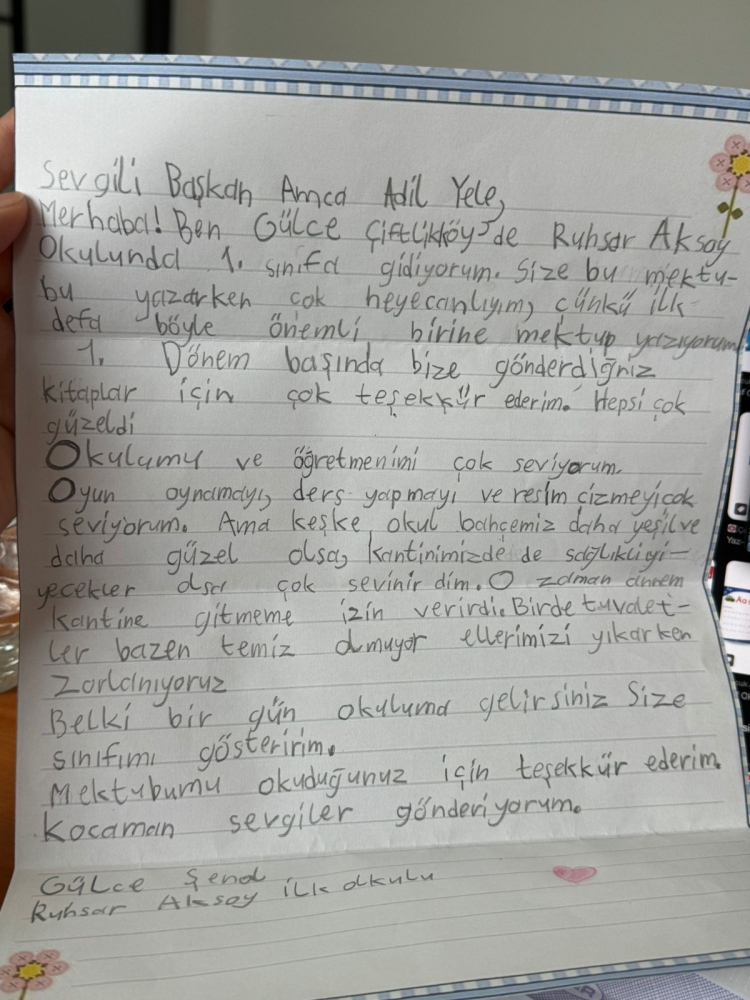 Sevgili Başkan Amca Adil Yele,
Merhaba! Ben Gülce Çiftlikköy'de Ruhsar Aksoy
Okulunda 1. sınıfa gidiyorum. Size bu mektu-
bu yazarken çok heyecanlıyım, çünkü ilk
defa böyle önemli birine mektup yazıyorum
1. Dönem başında bize gönderdiğniz
kitaplar için çok teşekkür ederim. Hepsi çok
güzeldi
Okulumu ve öğretmenimi çok seviyorum.
Oyun oynamayı, ders yapmayı ve resim çizmeyi çok
seviyorum. Ama keşke okul bahçemiz daha yeşil ve
daha güzel olsa, kantinimizde de sağlıklı yi-
yecekler olsa çok sevinirdim. O zaman annem
kantine gitmeme izin verirdi. Birde tuvalet-
ler bazen temiz olmuyor ellerimizi yıkarken
Zorlanıyoruz
Belki bir gün okuluma gelirsiniz Size
sınıfımı gösteririm.
Mektubumu okuduğunuz için teşekkür ederim.
Kocaman sevgiler gönderiyorum.
Gülce Şenol
Ruhsar Aksoy ilk okulu